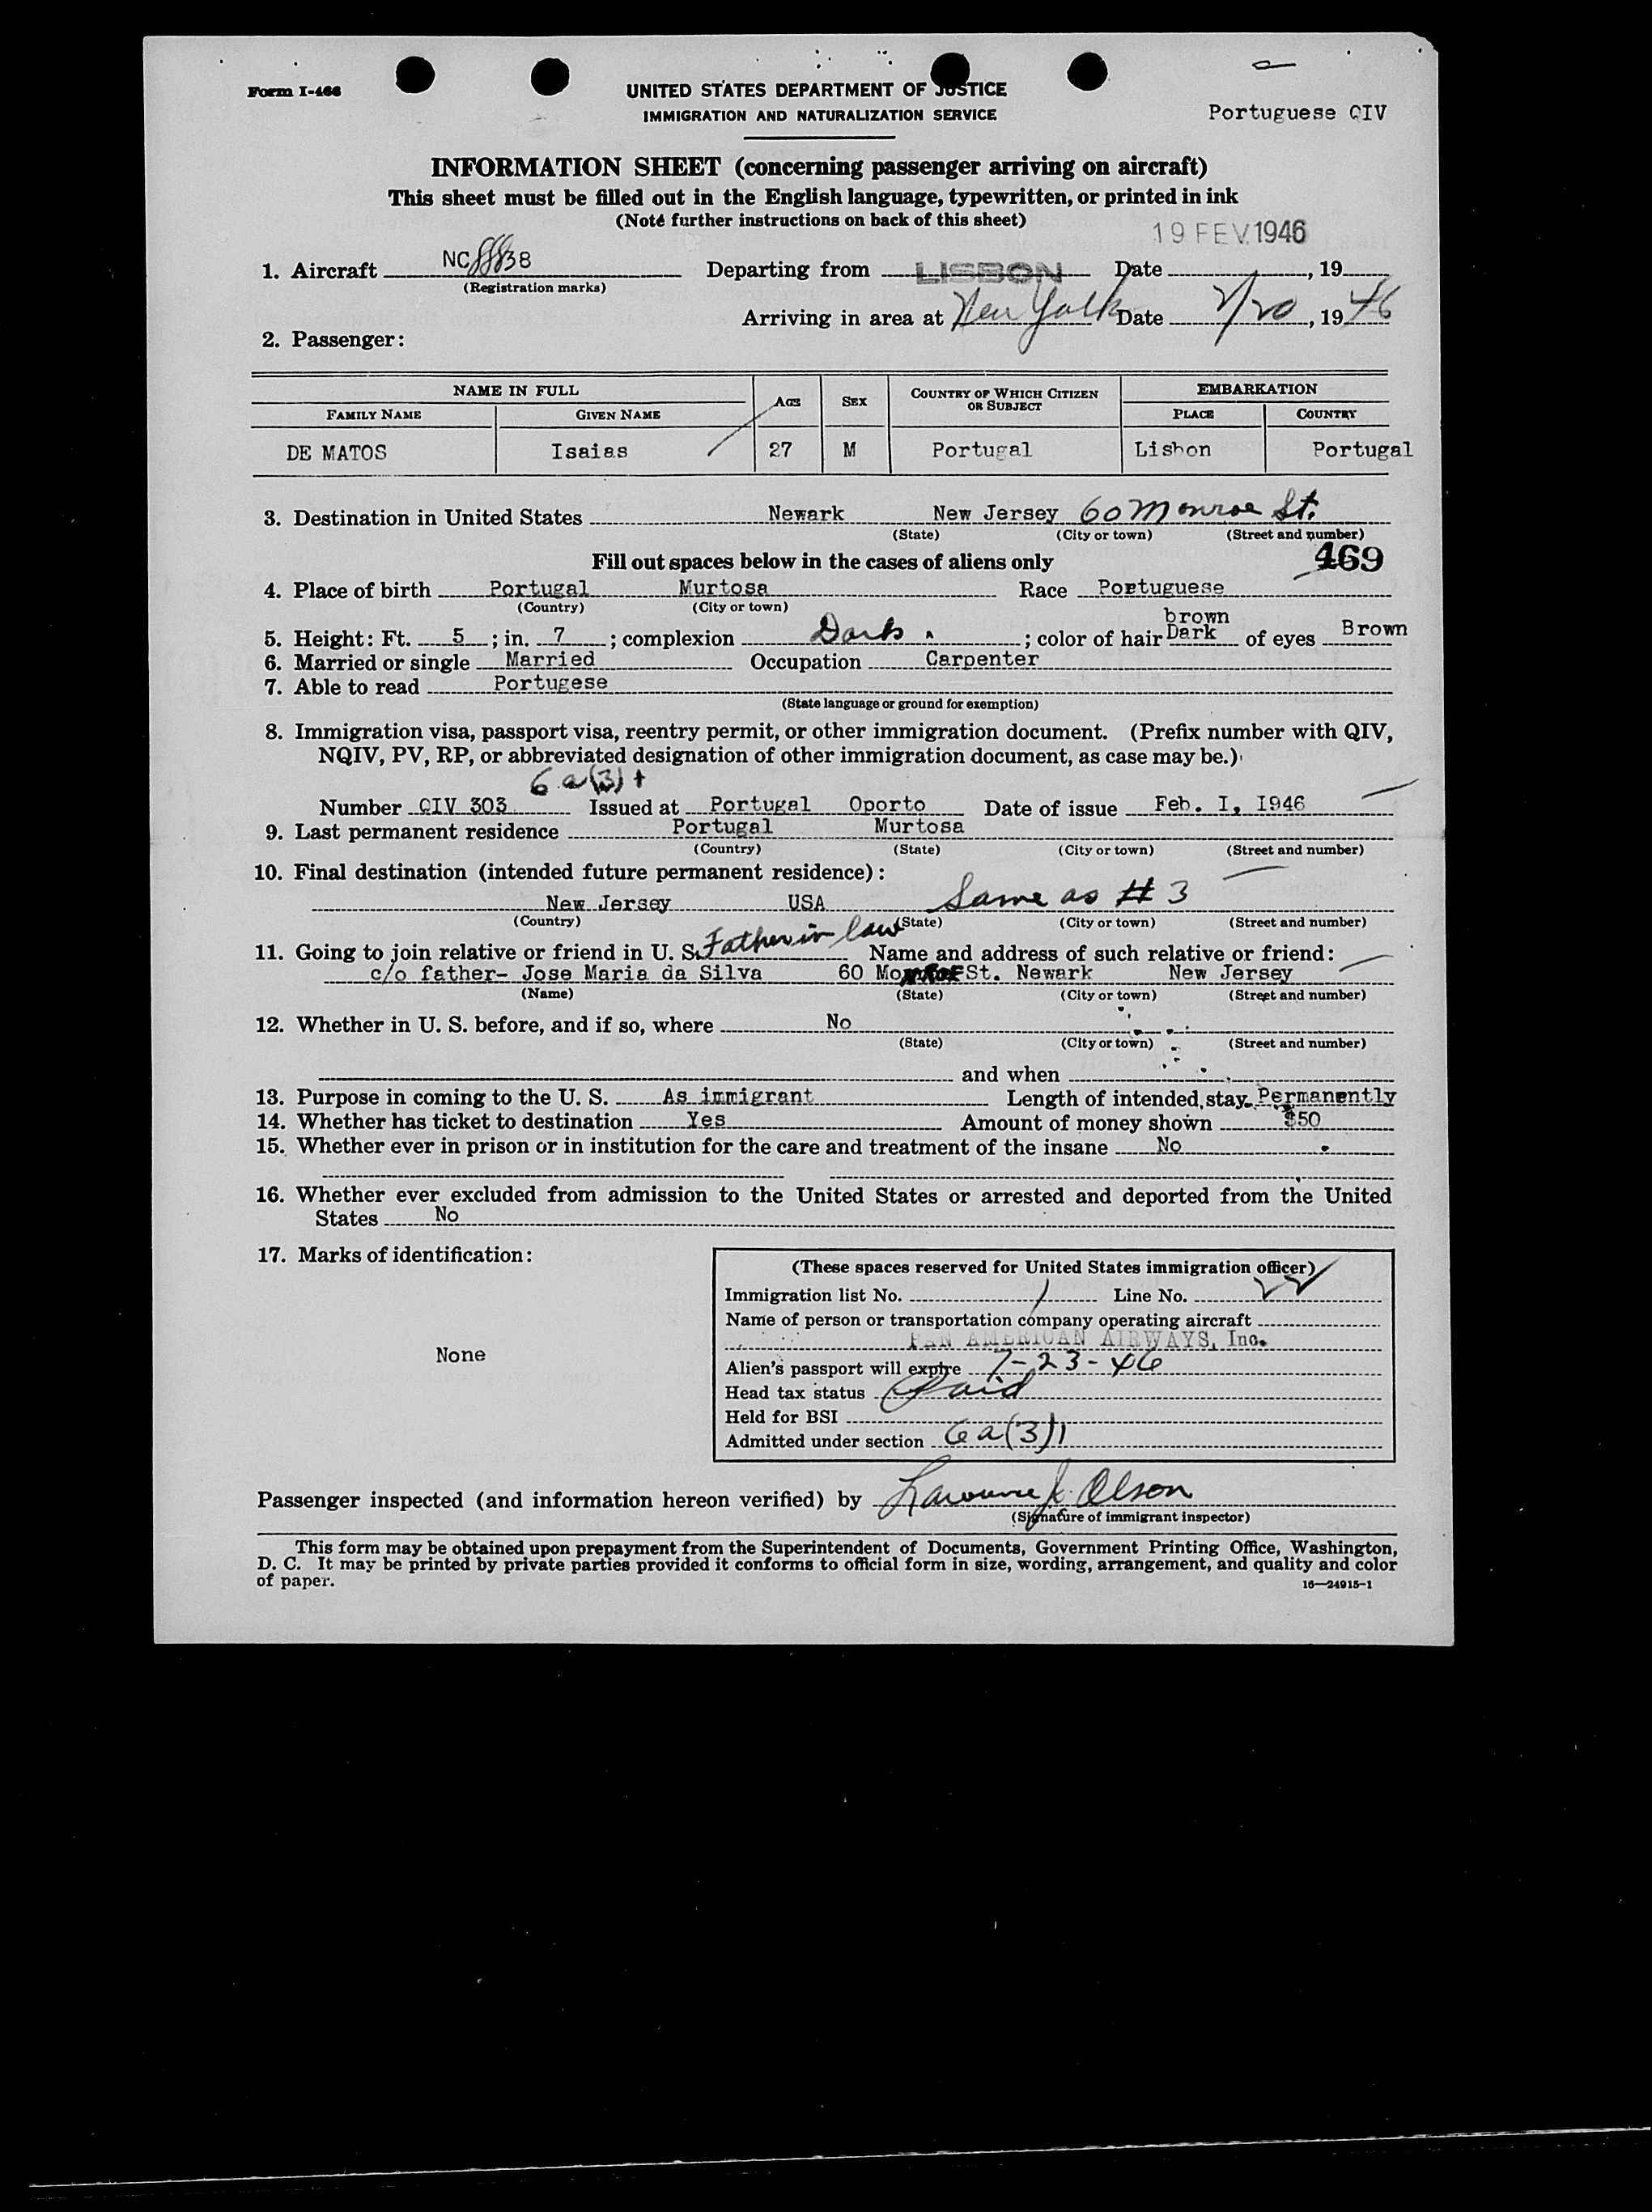 Form I-466
UNITED STATES DEPARTMENT OF JUSTICE
IMMIGRATION AND NATURALIZATION SERVICE
Portuguese QIV
INFORMATION SHEET (concerning passenger arriving on aircraft)
This sheet must be filled out in the English language, typewritten, or printed in ink
(Note further instructions on back of this sheet)
19 FEV. 1946
1. Aircraft NC 88838 Departing from LISBON Date , 19
(Registration marks)
Arriving in area at New York Date 2/20, 1946
2. Passenger:
NAME IN FULL AGE SEX COUNTRY OF WHICH CITIZEN OR SUBJECT EMBARKATION
FAMILY NAME GIVEN NAME PLACE COUNTRY
DE MATOS Isaias 27 M Portugal Lisbon Portugal
3. Destination in United States Newark New Jersey 60 Monroe St.
(State) (City or town) (Street and number)
Fill out spaces below in the cases of aliens only 469
4. Place of birth Portugal Murtosa Race Portuguese
(Country) (City or town)
brown
5. Height: Ft. 5; in. 7; complexion Dark; color of hair Dark of eyes Brown
6. Married or single Married Occupation Carpenter
7. Able to read Portugese
(State language or ground for exemption)
8. Immigration visa, passport visa, reentry permit, or other immigration document. (Prefix number with QIV,
NQIV, PV, RP, or abbreviated designation of other immigration document, as case may be.)
6 a(3) +
Number QIV 303 Issued at Portugal Oporto Date of issue Feb. I, I946
9. Last permanent residence Portugal Murtosa
(Country) (State) (City or town) (Street and number)
10. Final destination (intended future permanent residence):
New Jersey USA Same as # 3
(Country) (State) (City or town) (Street and number)
11. Going to join relative or friend in U. S. Father in law Name and address of such relative or friend:
c/o father- Jose Maria da Silva 60 Monroe St. Newark New Jersey
(Name) (State) (City or town) (Street and number)
12. Whether in U. S. before, and if so, where No
(State) (City or town) (Street and number)
and when
13. Purpose in coming to the U. S. As immigrant Length of intended stay Permanently
14. Whether has ticket to destination Yes Amount of money shown $50
15. Whether ever in prison or in institution for the care and treatment of the insane No
16. Whether ever excluded from admission to the United States or arrested and deported from the United
States No
17. Marks of identification:
None
(These spaces reserved for United States immigration officer)
Immigration list No. 1 Line No. 22
Name of person or transportation company operating aircraft
PAN AMERICAN AIRWAYS, Inc.
Alien's passport will expire 7-23-46
Head tax status Paid
Held for BSI
Admitted under section 6a(3)1
Passenger inspected (and information hereon verified) by Lawrence J. Olson
(Signature of immigrant inspector)
This form may be obtained upon prepayment from the Superintendent of Documents, Government Printing Office, Washington,
D. C. It may be printed by private parties provided it conforms to official form in size, wording, arrangement, and quality and color
of paper.
16—24915-1